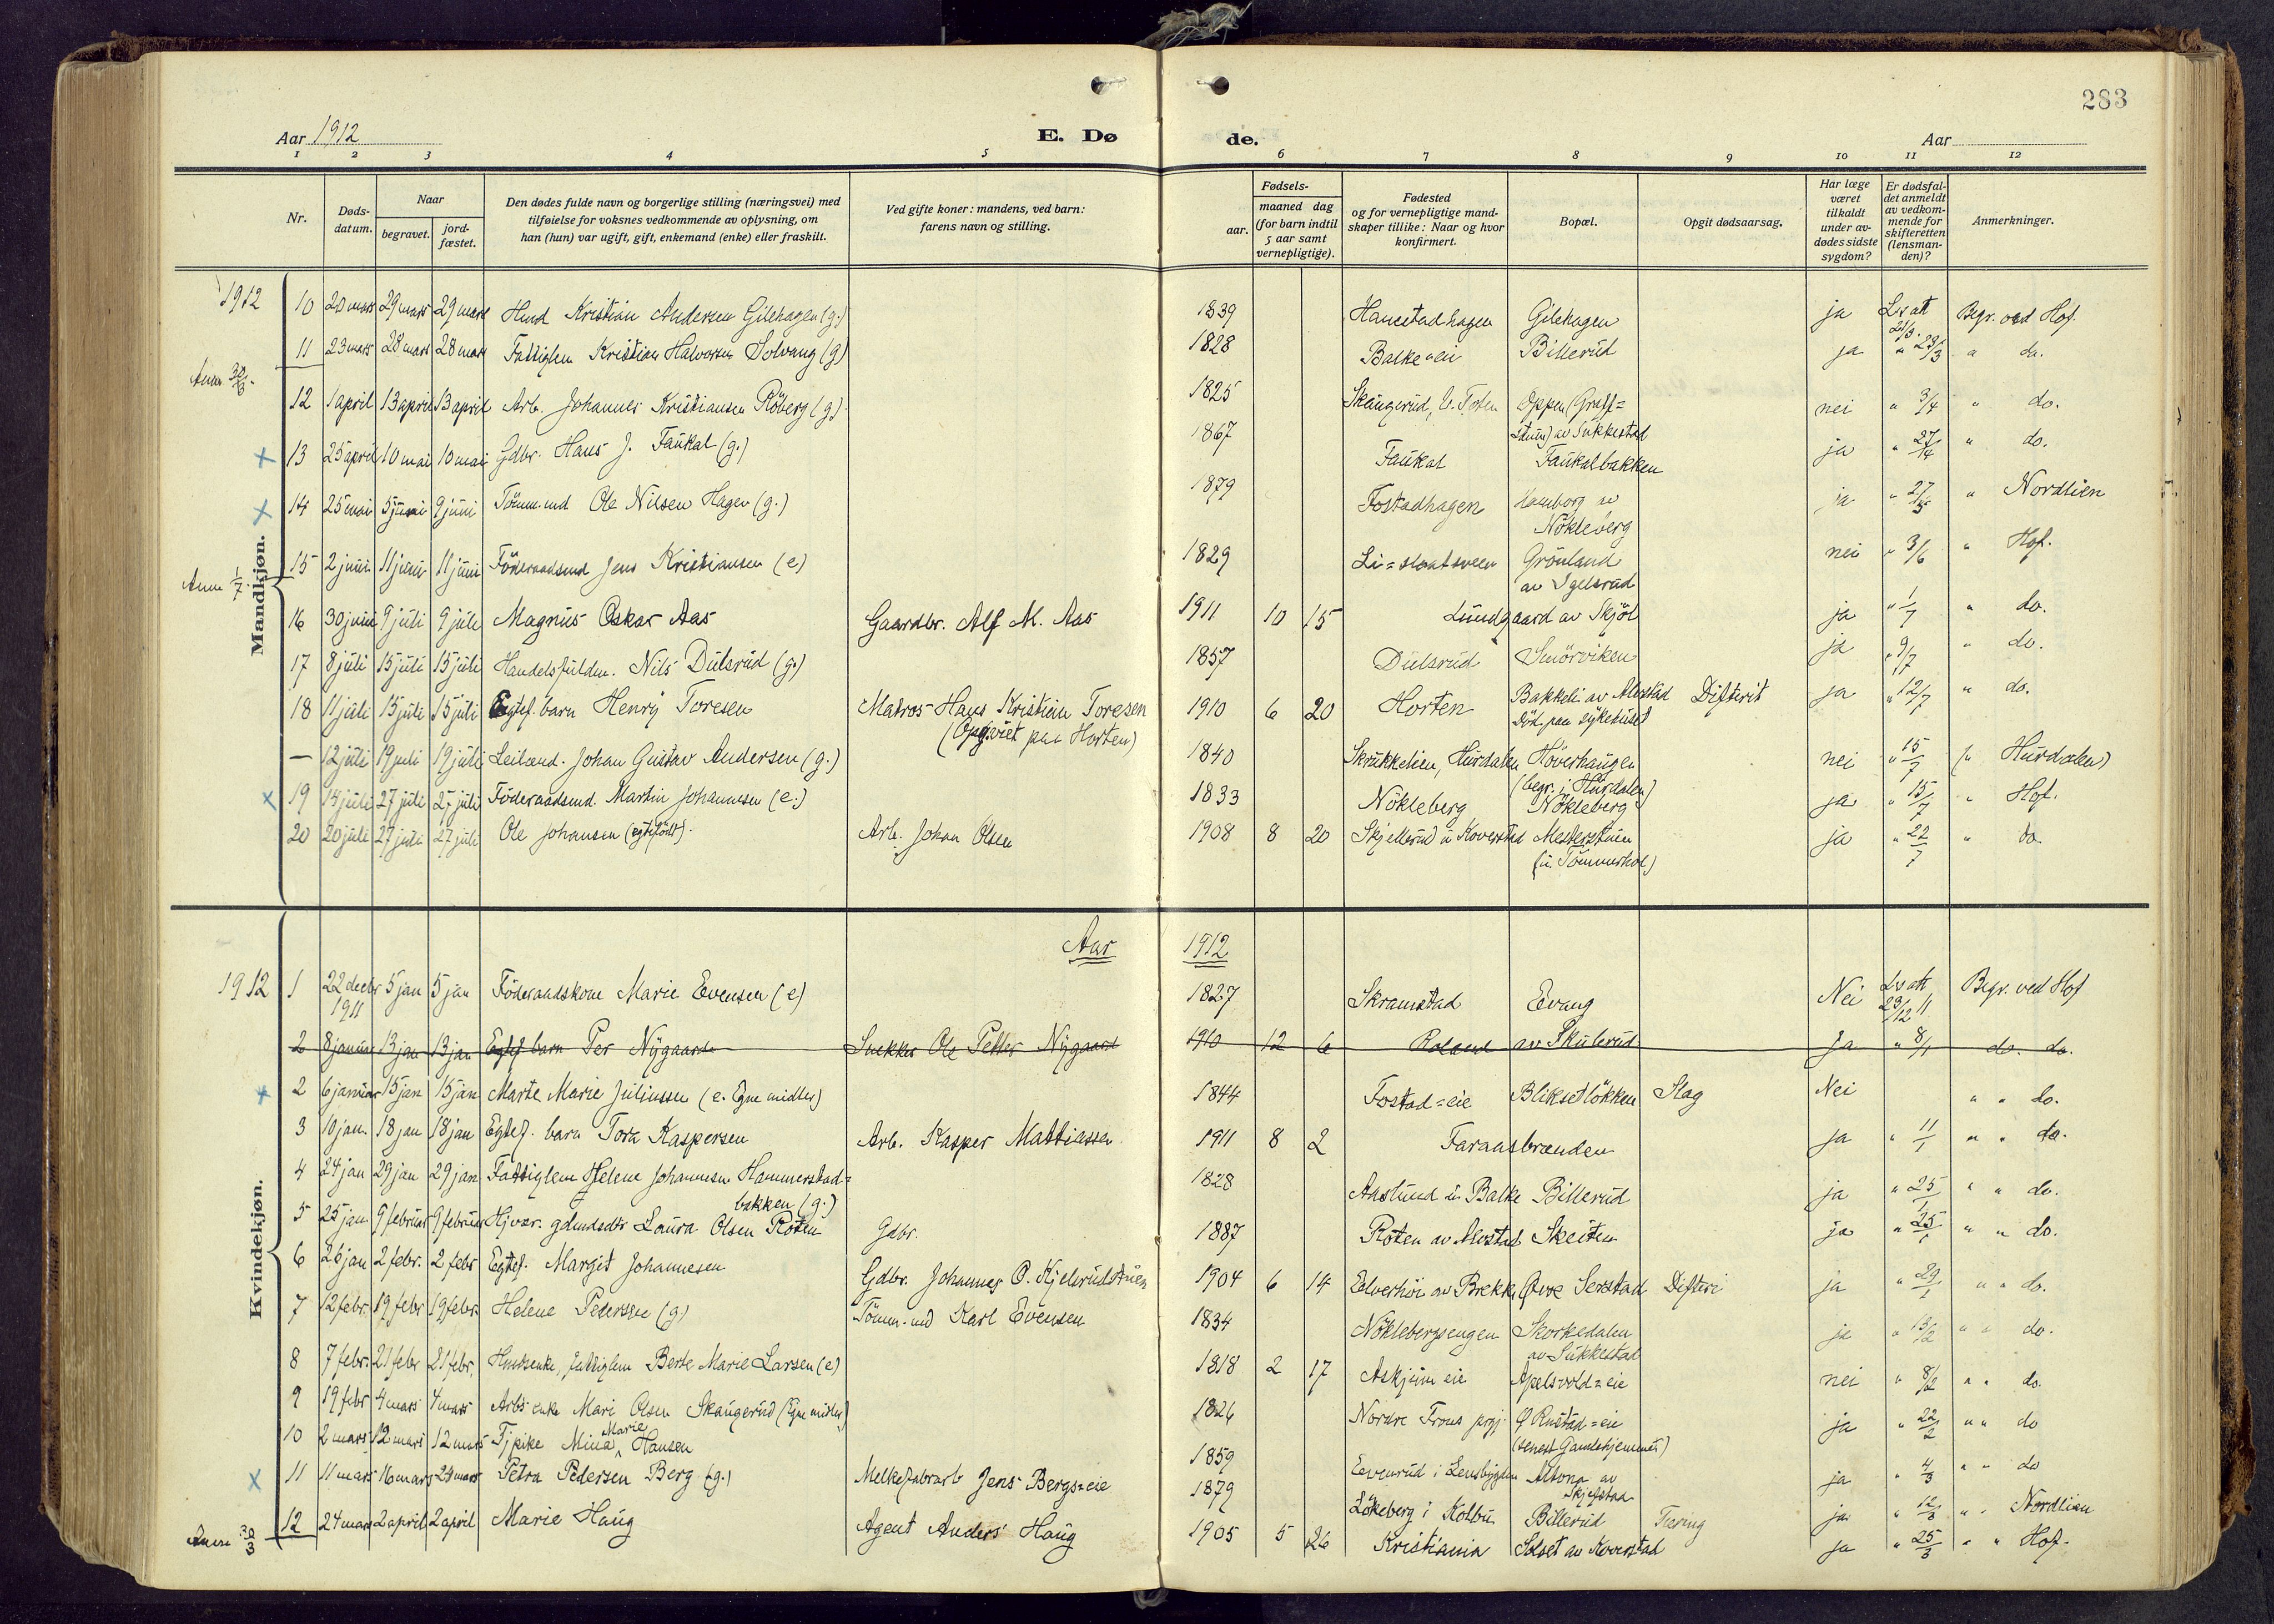 283
Aar 1912 E. Døde. Aar
1 2 3 4 5 6 7 8 9 10 11 12
Nr. Dødsdatum. Naar begravet. jordfæstet. Den dødes fulde navn og borgerlige stilling (næringsvei) med tilføielse for voksnes vedkommende av oplysning, om han (hun) var ugift, gift, enkemand (enke) eller fraskilt. Ved gifte koner: mandens, ved barn: farens navn og stilling. Fødsels- aar. maaned dag (for barn indtil 5 aar samt vernepligtige). Fødested og for vernepligtige mandskaper tillike: Naar og hvor konfirmert. Bopæl. Opgit dødsaarsag. Har læge været tilkaldt under avdødes sidste sygdom? Er dødsfaldet anmeldt av vedkommende for skifteretten (lensmanden)? Anmerkninger.
Mandkjøn.
1912 10 20 mars 29 mars 29 mars Kristian Andersen Gilehagen (g.) 1839 Gilehagen ja Begr. ved Hof.
11 23 mars 28 mars 28 mars Fattiglem Kristian Halvorsen Solvang (g) 1828 Balke=eie Billerud ja do.
12 1 april 13 april 13 april Arb. Johannes Kristiansen Röberg (g). 1825 Skaugerud, V. Toten nei " 3/4 " do.
13 25 april 10 mai 10 mai Gdbr. Hans J. Faukal (g.) 1867 Faukal Faukalbakken ja " 27/4 " do.
14 25 mai 5 juni 9 juni Tömm.md Ole Nilsen Hagen (g.) 1879 Fostadhagen Nökleberg ja " 27/5 " Nordlien
15 2 juni 11 juni 11 juni Föderaadsmd Jens Kristiansen (e) 1829 Grönland av Igelsrud nei " 3/6 " Hof.
16 30 juni 9 juli 9 juli Magnus Oskar Aas Gaardbr. Alf M. Aas 1911 10 15 Lundgaard av Skjöl ja " 1/7 " do.
17 8 juli 15 juli 15 juli Nils Dulsrud (g.) 1857 Dulsrud Smörviken ja " 9/7 " do.
18 11 juli 15 juli 15 juli Egtef. barn Henry Toresen Matros Hans Kristian Toresen 1910 6 20 Horten Bakkeli av Alvstad Difterit ja " 12/7 " do.
Död paa sykehuset
— 12 juli 19 juli 19 juli Leilænd. Johan Gustav Andersen (g.) 1840 Skrukkelien, Hurdalen Höverhaugen nei " 15/7 (" Hurdalen)
(begr. i Hurdalen)
19 14 juli 27 juli 27 juli Föderaadsmd. Martin Johannesen (e.) 1833 Nökleberg Nökleberg ja " 15/7 " Hof.
20 20 juli 27 juli 27 juli Ole Johansen (egtefödt). Arb. Johan Olsen 1908 8 20 Skjellerud u. Koverstad ja " 22/7 " do.
Aar 1912
Kvindekjøn.
1912 1 22 decbr 1911 5 jan 5 jan Föderaadskone Marie Evensen (e) 1827 Skramstad Evang Nei Begr. ved Hof
2 8 januar 13 jan 13 jan Egtef barn Per Nygaard Snekker Ole Petter Nygaard 1910 12 6 Roland av Skulerud ja " 8/1 do. do.
2 6 januar 15 jan 15 jan Marte Marie Juliussen (e. Egne midler) 1844 Fostad=eie Bliksetlökken Slag Nei " " do.
3 10 jan. 18 jan 18 jan Egtef. barn Tora Kaspersen Arb. Kasper Mattiassen 1911 8 2 Faraasbrænden ja " 11/1 " " do.
4 24 jan 29 jan 29 jan Fattiglem Helene Johannesen Hammerstadbakken (g.) 1828 Aaslund u. Balke Billerud ja " 25/1 " " do.
5 25 jan. 9 februar 9 februar Hjvær. gdmdsdtr Laura Olsen Roten Gdbr. 1887 Roten av Alvstad Skeiten ja " 25/1 " " do.
6 26 jan 2 febr. 2 febr Egtef. Margit Johannesen Gdbr. Johannes O. Kjelsrudstuen 1904 6 14 Difteri ja " 29/1 " " do.
7 12 febr. 19 febr 19 febr. Helene Pedersen (g) Tömm.md Karl Evensen 1834 Nöklebergsengen Skorkedalen av Sukkestad ja " 13/2 " " do.
8 7 febr. 21 febr 21 febr. fattiglem Berte Marie Larsen (e) 1818 2 17 Askjum eie Apelsvold=eie nei " 8/2 " " do.
9 19 febr 4 mars 4 mars Arbs enke Mari Olsen Skaugerud (Egne midler) 1826 Ø Rustad=eie ja " 22/2 " " do
(senest Gamlehjemmet)
10 2 mars 12 mars 12 mars Tjpike Mina Marie Hansen 1859 ja " 4/3 " " do
11 11 mars 16 mars 24 mars Petra Pedersen Berg (g.) Melkefabrarb Jens Bergs=eie 1879 Lökeberg i Kolbu Billerud Tæring ja " 12/3 " " Nordlien
12 24 mars 2 april 2 april Marie Haug Agent Anders Haug 1905 5 26 Kristiania Solset av Koverstad ja " 25/3 " " Hof.